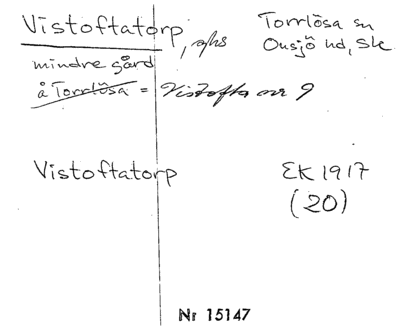 Vistoftatorp, Torrlösa sn
Onsjö hd, Sk
mindre gård
å Torrlösa = Vistofta nr 9
Vistoftatorp EK 1917
(20)
Nr 15147